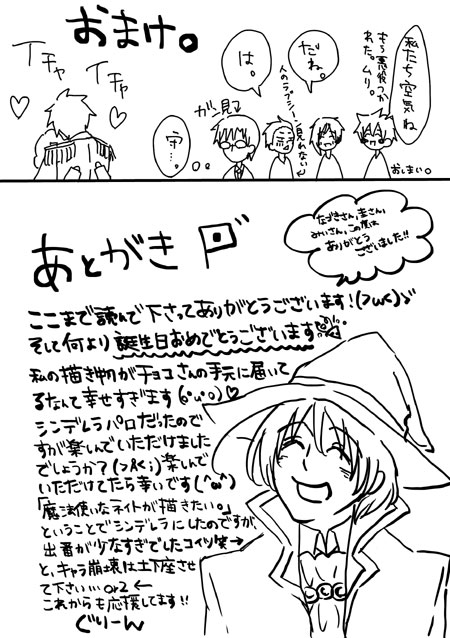 おまけ。
私たち空気ね
もう悪役つか
れた。ムリ。
だね。
人のラブシーン見れない
は。
ガン見
守…。
イチャ
イチャ
おしまい。
あとがき
なづきさん、圭さん、
みいさん、この度は
ありがとう
ございました!!
ここまで読んで下さってありがとうございます!(>ω<)ゞ
そして何より誕生日おめでとうございます
私の描き物がチョコさんの手元に届いて
るなんて幸せすぎます(°ω°)♡
シンデレラパロだったので
すが楽しんでいただけました
でしょうか?(>人<;)楽しんで
いただけてたら幸いです(^ω^)
「魔法使いなライトが描きたい。」
ということでシンデレラにしたのですが、
出番が少なすぎでしたコイツ笑→
と、キャラ崩壊は土下座させ
て下さい…orz←
これからも応援してます!!
ぐりーん